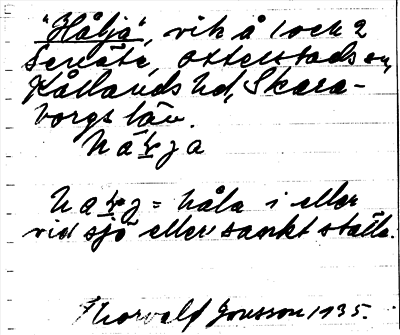 "Hålja", vik å 1 och 2
Senäte, Otterstads sn,
Kållands hd, Skara-
borgs län.
håḷja
haḷj = håla i eller
vid sjö eller sankt ställe.
Thorvald Jonsson 1935.